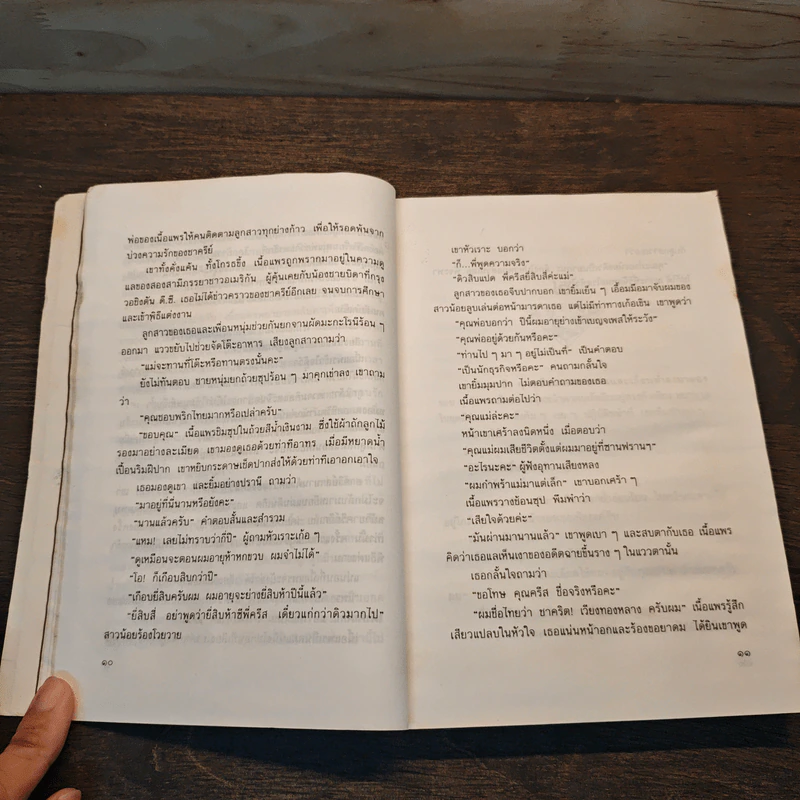 พ่อของเนื้อแพรให้คนติดตามลูกสาวทุกย่างก้าว เพื่อให้รอดพ้นจาก
บ่วงความรักของชาครีย์
เขาทั้งคั่งแค้น ทั้งโกรธขึ้ง เนื้อแพรถูกพรากมาอยู่ในความดู
แลของสองสามีภรรยาชาวอเมริกัน ผู้คุ้นเคยกับน้องชายบิดาที่กรุง
วอชิงตัน ดี.ซี. เธอไม่ได้ข่าวคราวของชาครีย์อีกเลย จนจบการศึกษา
และเข้าพิธีแต่งงาน
ลูกสาวของเธอและเพื่อนหนุ่มช่วยกันยกจานผัดมะกะโรนีร้อน ๆ
ออกมา แววขยับไปช่วยจัดโต๊ะอาหาร เสียงลูกสาวถามว่า
"แม่จะทานที่โต๊ะหรือทานตรงนั้นคะ"
ยังไม่ทันตอบ ชายหนุ่มยกถ้วยซุปร้อน ๆ มาคุกเข่าลง เขาถาม
ว่า
"คุณชอบพริกไทยมากหรือเปล่าครับ"
"ขอบคุณ" เนื้อแพรชิมซุปในถ้วยสีน้ำเงินงาม ซึ่งใช้ผ้าถักลูกไม้
รองมาอย่างละเมียด เขามองดูเธอด้วยท่าทีอาทร เมื่อมีหยาดน้ำ
เปื้อนริมฝีปาก เขาหยิบกระดาษเช็ดปากส่งให้ด้วยท่าทีเอาอกเอาใจ
เธอมองดูเขา และยิ้มอย่างปรานี ถามว่า
"มาอยู่ที่นี่นานหรือยังคะ"
"นานแล้วครับ" คำตอบสั้นและสำรวม
"แหม! เลยไม่ทราบว่ากี่ปี" ผู้ถามหัวเราะเก้อ ๆ
"ดูเหมือนจะตอนผมอายุห้าหกขวบ ผมจำไม่ได้"
"โอ! ก็เกือบสิบกว่าปี"
"เกือบยี่สิบครับผม ผมอายุจะย่างยี่สิบห้าปีนี้แล้ว"
"ยี่สิบสี่ อย่าพูดว่ายี่สิบห้าซีพี่คริส เดี๋ยวแก่กว่าดิวมากไป"
สาวน้อยร้องโวยวาย
๑๐
เขาหัวเราะ บอกว่า
"ก็...พี่พูดความจริง"
"ดิวสิบแปด พี่คริสยี่สิบสี่ค่ะแม่"
ลูกสาวของเธอจีบปากบอก เขายิ้มเย็น ๆ เอื้อมมือมาจับผมของ
สาวน้อยลูบเล่นต่อหน้ามารดาเธอ แต่ไม่มีท่าทางเก้อเขิน เขาพูดว่า
"คุณพ่อบอกว่า ปีนี้ผมอายุย่างเข้าเบญจเพสให้ระวัง"
"คุณพ่ออยู่ด้วยกันหรือคะ"
"ท่านไป ๆ มา ๆ อยู่ไม่เป็นที่" เป็นคำตอบ
"เป็นนักธุรกิจหรือคะ" คนถามกลั้นใจ
เขายิ้มมุมปาก ไม่ตอบคำถามของเธอ
เนื้อแพรถามต่อไปว่า
"คุณแม่ล่ะคะ"
หน้าเขาเศร้าลงนิดหนึ่ง เมื่อตอบว่า
"คุณแม่ผมเสียชีวิตตั้งแต่ผมมาอยู่ที่ซานฟรานฯ"
"อะไรนะคะ" ผู้ฟังอุทานเสียงหลง
"ผมกำพร้าแม่มาแต่เล็ก" เขาบอกเศร้า ๆ
เนื้อแพรวางช้อนซุป พึมพำว่า
"เสียใจด้วยค่ะ"
"มันผ่านมานานแล้ว" เขาพูดเบา ๆ และสบตากับเธอ เนื้อแพร
คิดว่าเธอแลเห็นเงาของอดีตฉายขึ้นราง ๆ ในแววตานั้น
เธอกลั้นใจถามว่า
"ขอโทษ คุณคริส ชื่อจริงหรือคะ"
"ผมชื่อไทยว่า ชาคริต! เวียงทองหลาง ครับผม" เนื้อแพรรู้สึก
เสียวแปลบในหัวใจ เธอแน่นหน้าอกและร้องขอยาดม ได้ยินเขาพูด
๑๑